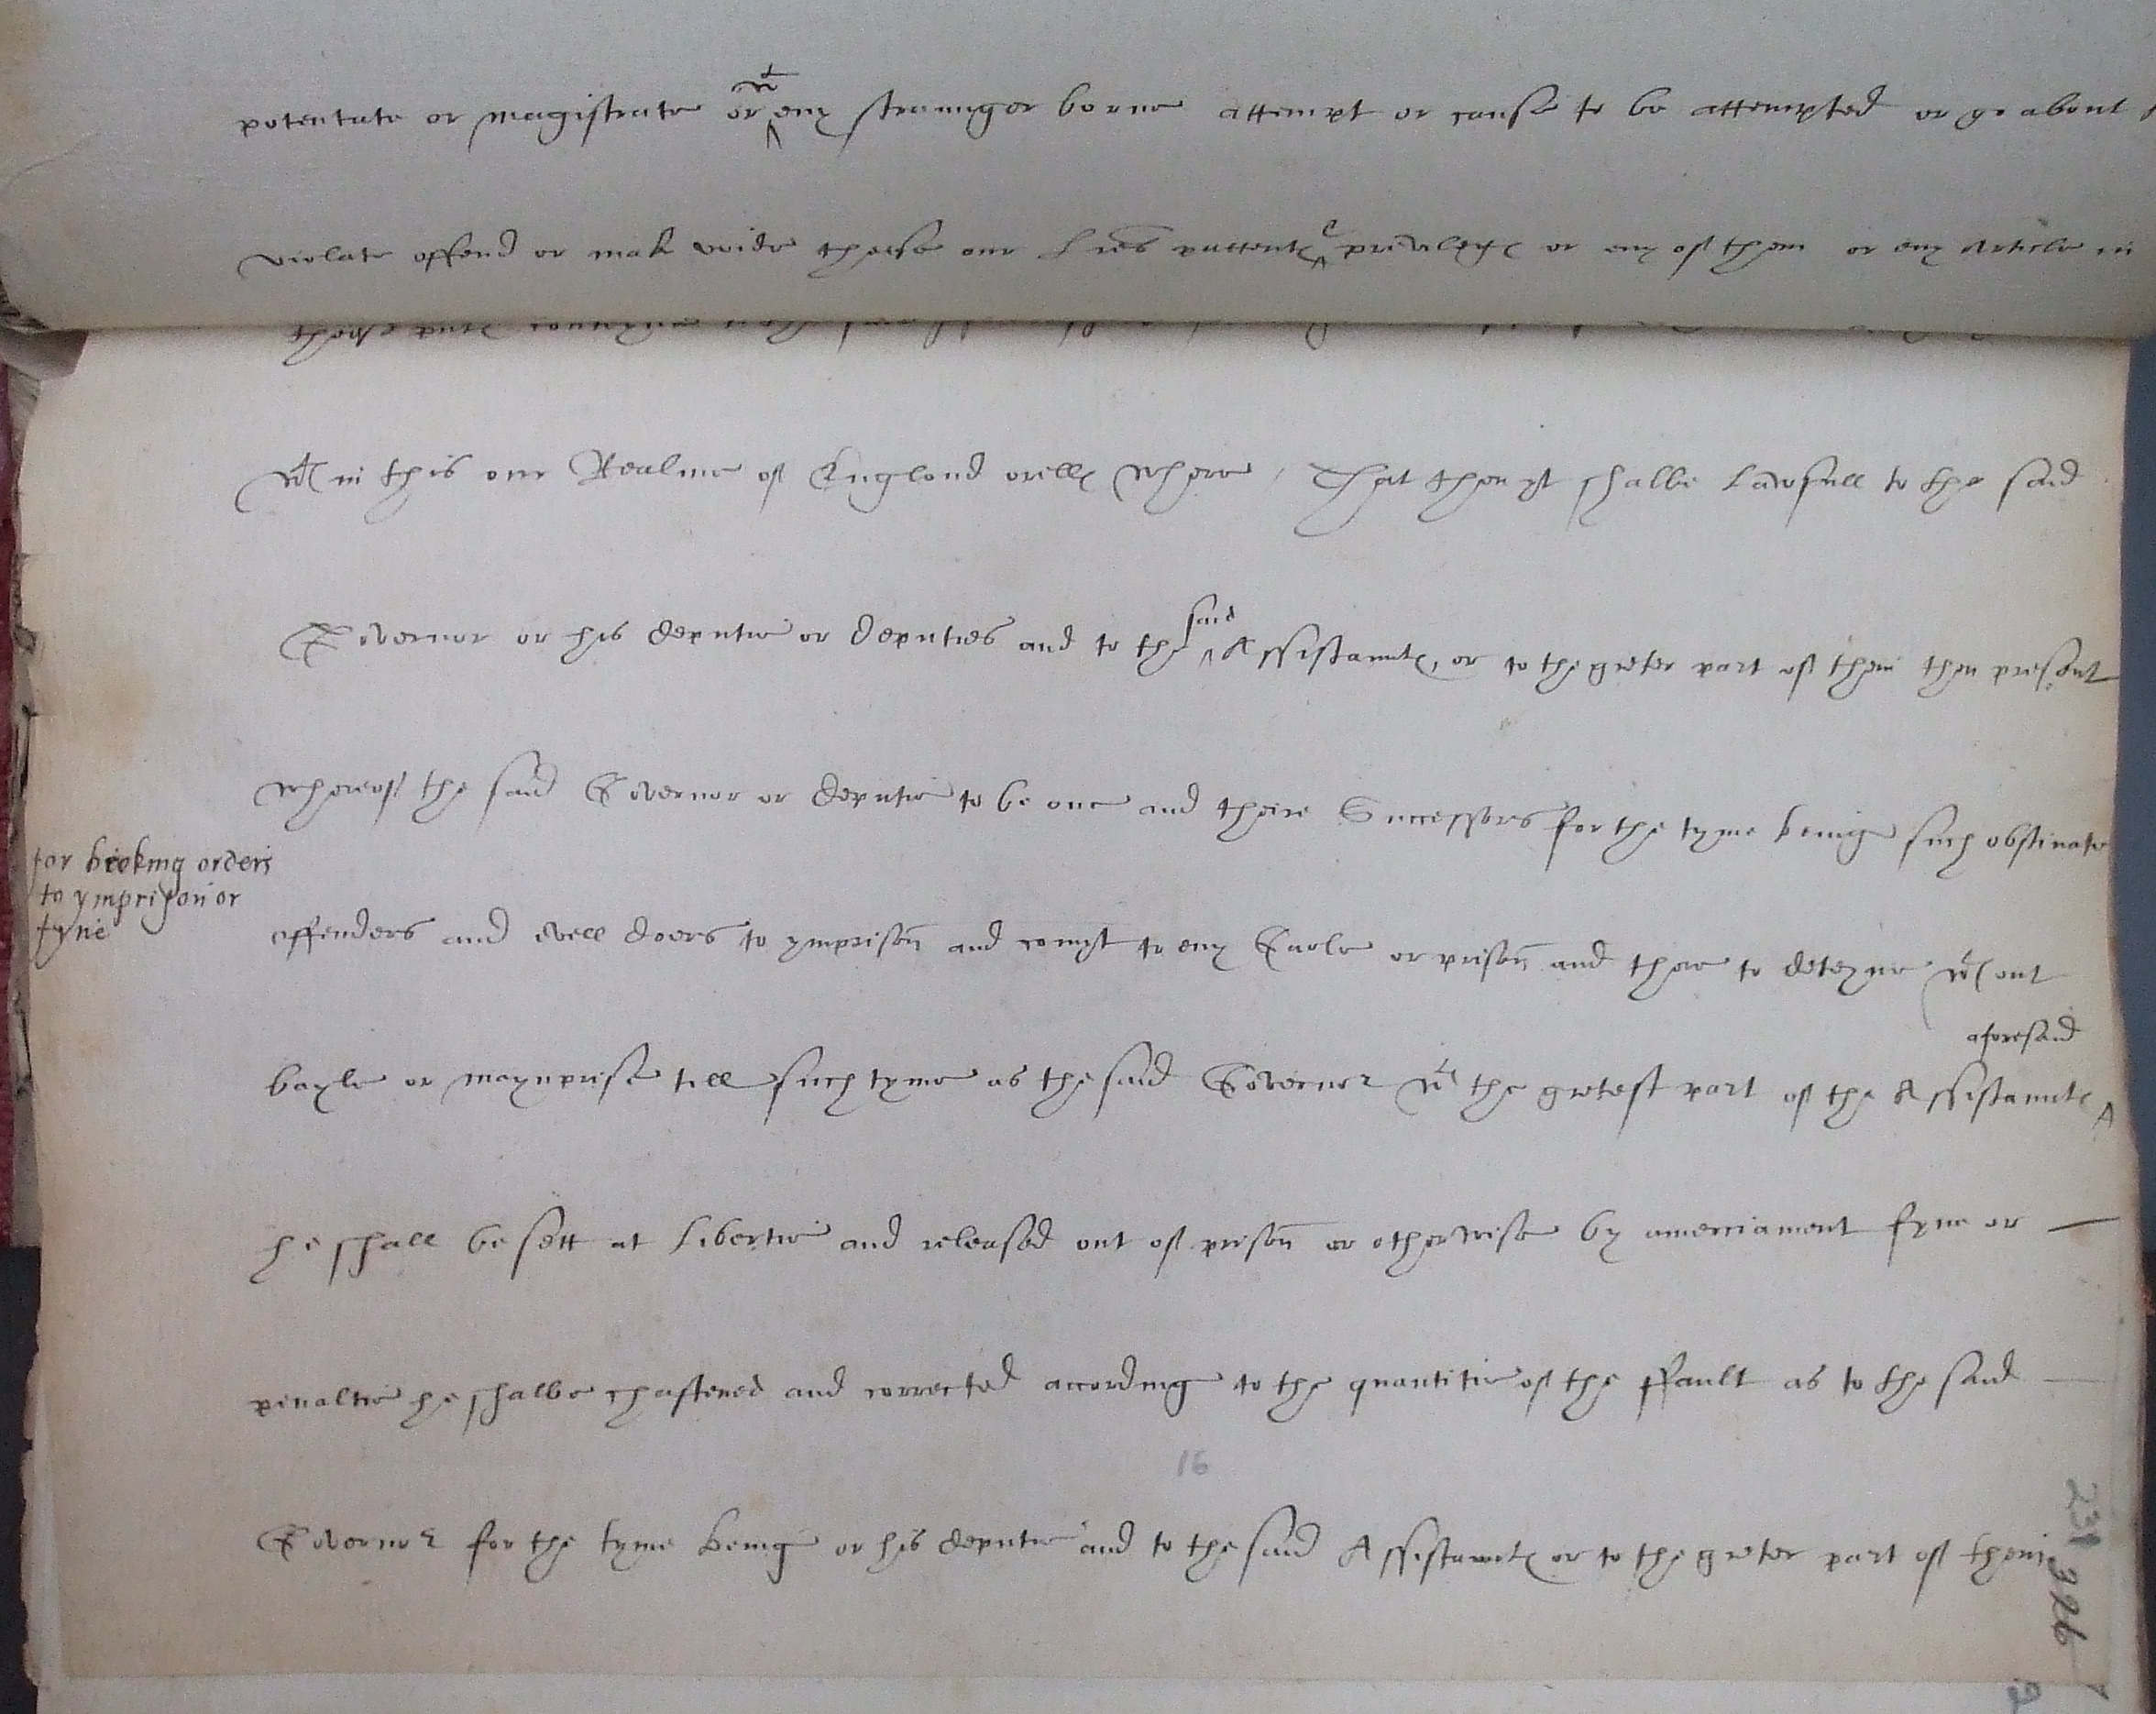 potentate or magistrate or wt eny straunger borne attempt or cause to be attempted or go about
violate offend or mak voide theise our Lres pattentes & privileges or eny of them or any Article in
wt in this our Realme of Englond orelles where / That then yt shalbe Lawfull to the said
Governor or his deputie or deputies and to the said Assistauntes, or to the greter part of them then present
whereof the said Governor or deputie to be one and theire Successors for the tyme being such obstinate
for breking orders
to ymprison or
fyne
offenders and evell doers to ymprison and comyt to eny Gaole or prison and there to deteyne wt out
bayle or maynprise till such tyme as the said Governor wt the gretest part of the Assistauntes aforesaid
he shall be sett at Libertie and released out of prison or otherwise by amerciament fyne or —
penaltie he shalbe chastened and corrected according to the quantitie of the ffault as to the said —
16
Governor for the tyme being or his deputie and to the said Assistauntes or to the greter part of them